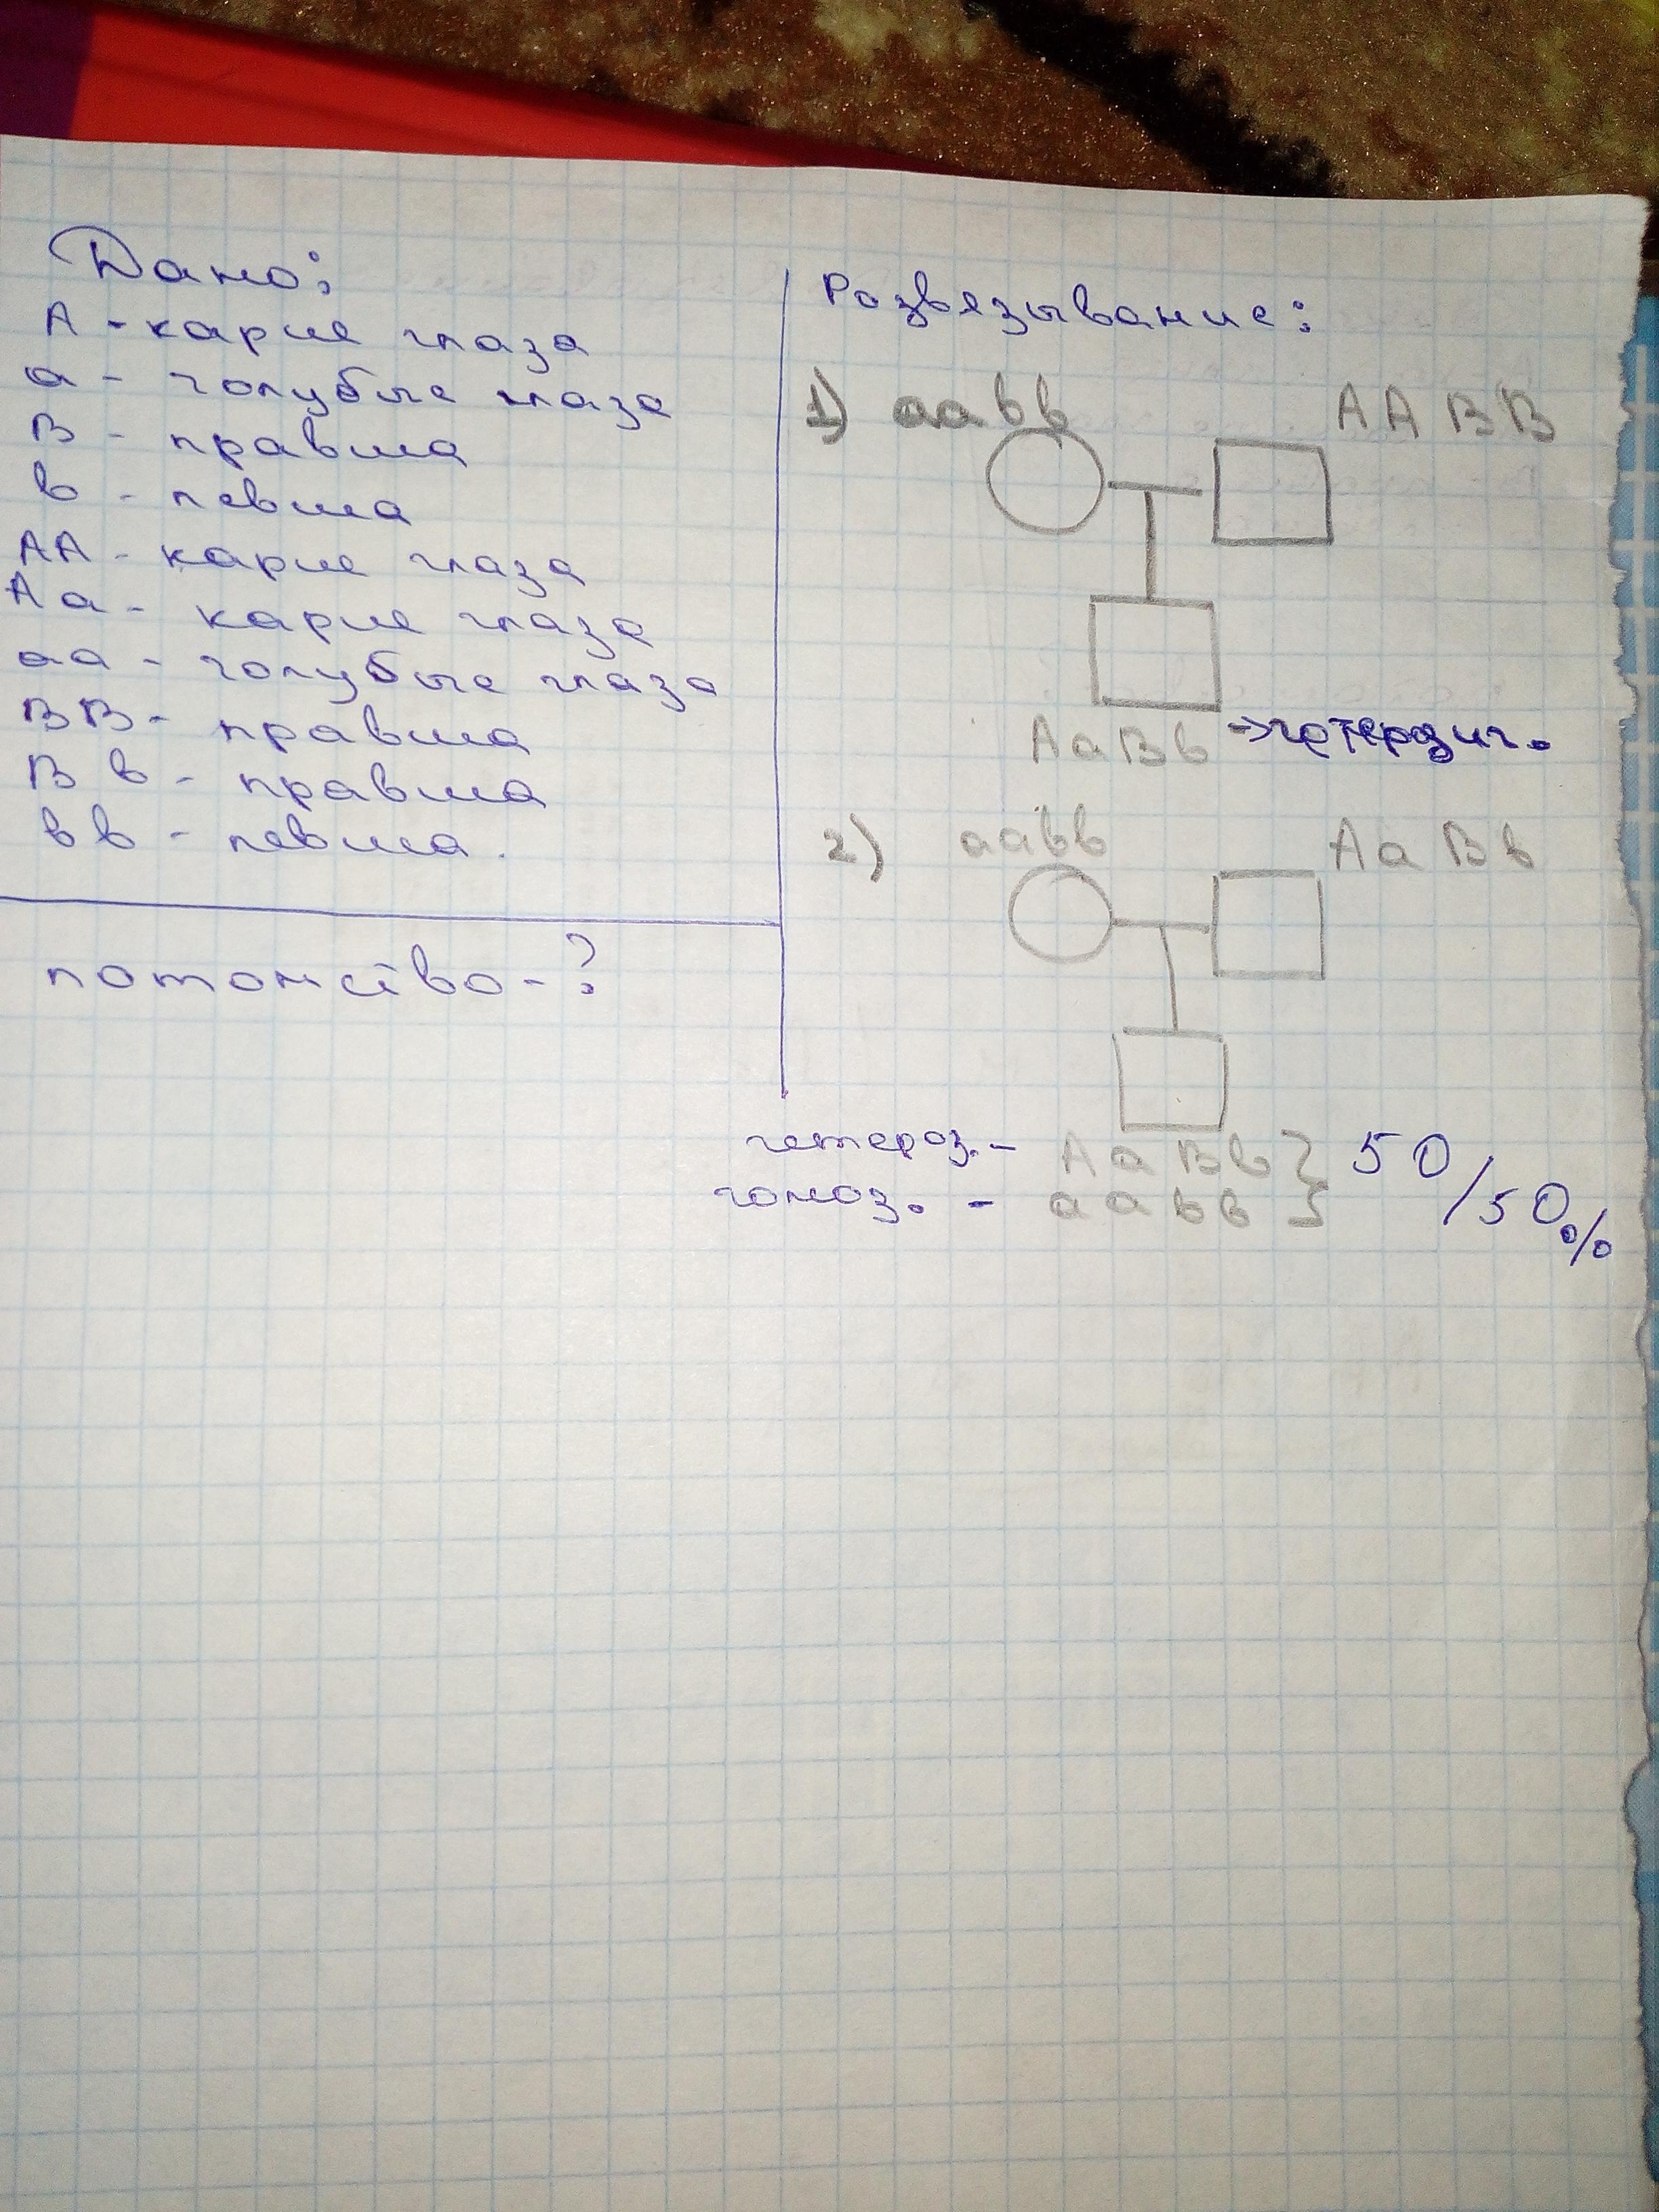 Дано:
А - карие глаза
а - голубые глаза
В - правша
в - левша
АА - карие глаза
Аа - карие глаза
аа - голубые глаза
ВВ - правша
Вв - правша
вв - левша.
потомство - ?
Розвязывание:
1) аавв ААВВ
АаВв → гетерозиг.
2) аавв АаВв
гетероз. - АаВв } 50/50%
гомоз. - аавв